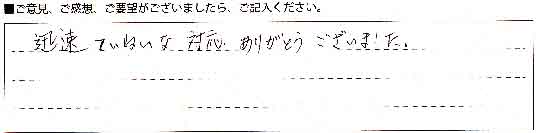 ■ご意見、ご感想、ご要望がございましたら、ご記入ください。
迅速ていねいな対応ありがとうございました。